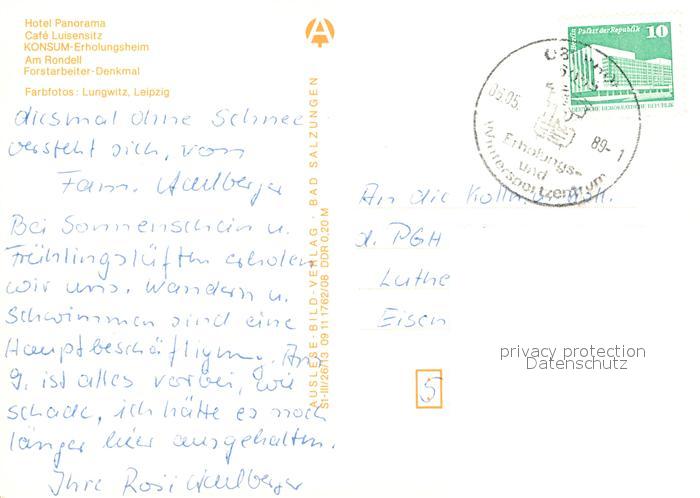 Hotel Panorama
Café Luisensitz
KONSUM-Erholungsheim
Am Rondell
Forstarbeiter-Denkmal
Farbfotos: Lungwitz, Leipzig
diesmal ohne Schnee
versteht sich, von
Fam.
Bei Sonnenschein u.
Frühlingslüften erholen
wir uns. Wandern u.
Schwimmen sind eine
Hauptbeschäftigung. Am
9. ist alles vorbei, wie
schade, ich hätte es noch
länger hier ausgehalten.
Ihre Rosi
AUSLESE-BILD-VERLAG · BAD SALZUNGEN
St-III/26/13 09 11 1762/08 DDR 0,20 M
Berlin Palast der Republik 10
DEUTSCHE DEMOKRATISCHE REPUBLIK
05.05. 89-1
Erholungs-
und
Wintersportzentrum
An die
d. PGH
Luthe
Eisen
5
privacy protection
Datenschutz